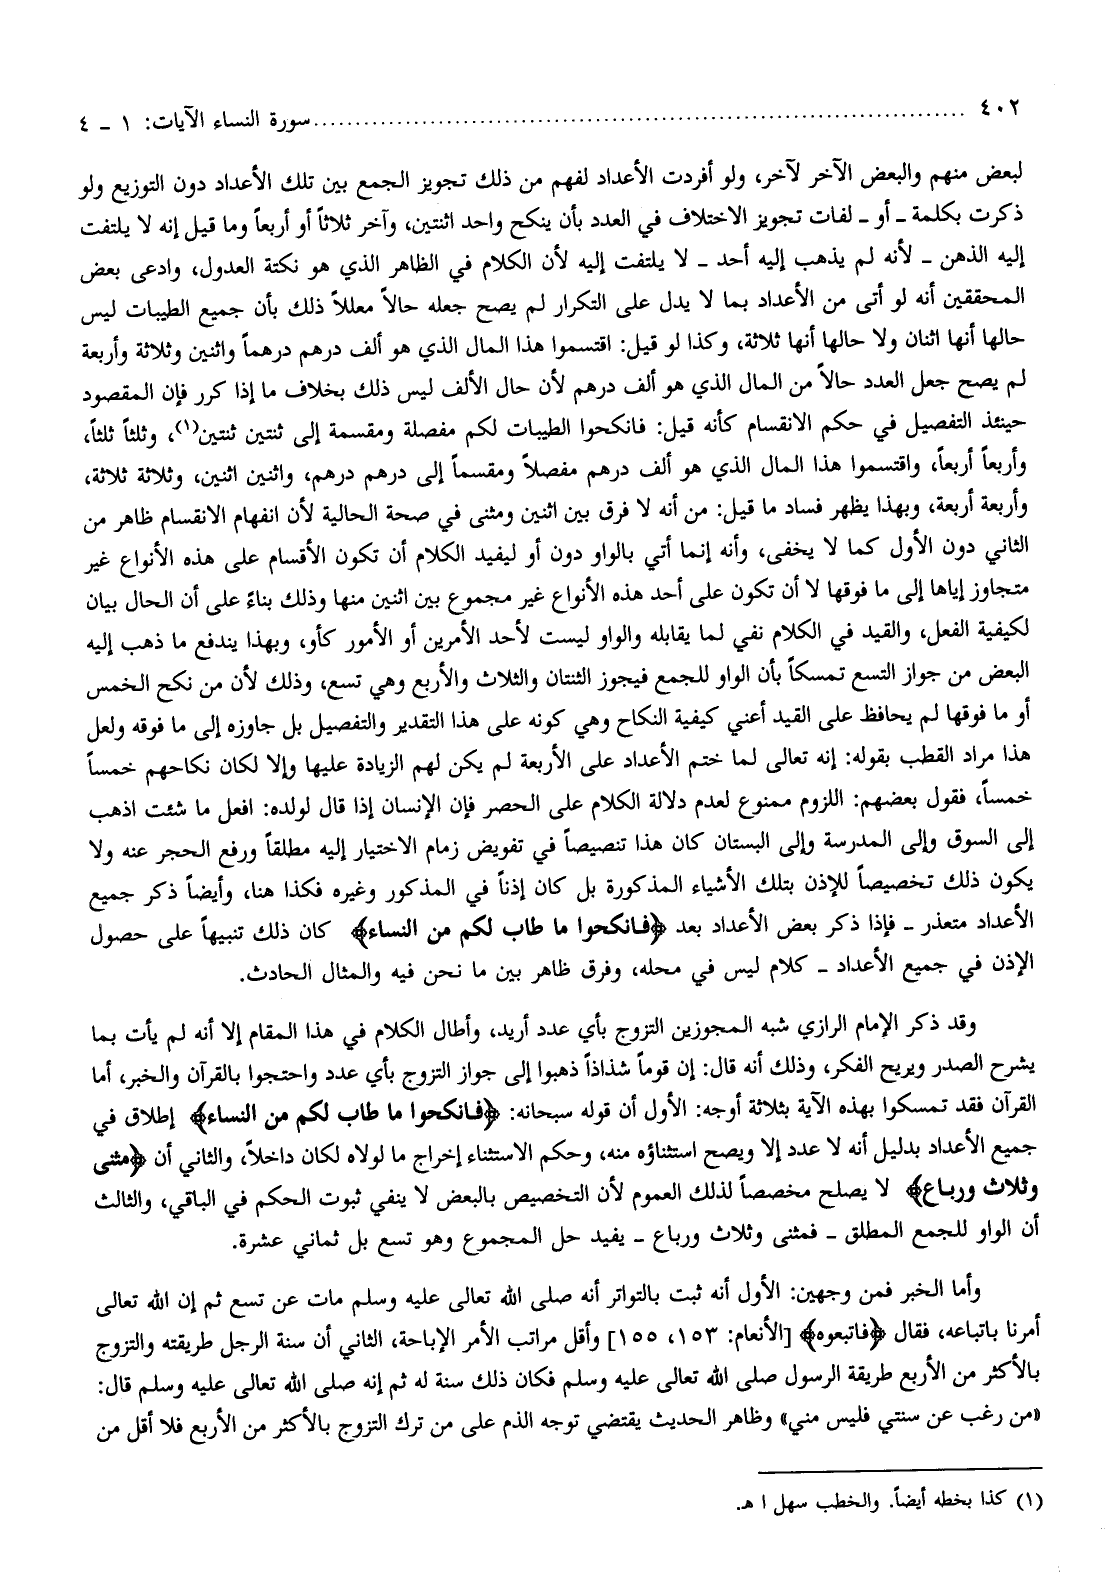 ٤٠٢ ........................................................ سورة النساء الآيات: ١ ـ ٤
لبعض منهم والبعض الآخر لآخر، ولو أفردت الأعداد لفهم من ذلك تجويز الجمع بين تلك الأعداد دون التوزيع ولو
ذكرت بكلمة ـ أو ـ لفات تجويز الاختلاف في العدد بأن ينكح واحد اثنتين، وآخر ثلاثاً أو أربعاً وما قيل إنه لا يلتفت
إليه الذهن ـ لأنه لم يذهب إليه أحد ـ لا يلتفت إليه لأن الكلام في الظاهر الذي هو نكتة العدول، وادعى بعض
المحققين أنه لو أتى من الأعداد بما لا يدل على التكرار لم يصح جعله حالاً معللاً ذلك بأن جميع الطيبات ليس
حالها أنها اثنان ولا حالها أنها ثلاثة، وكذا لو قيل: اقتسموا هذا المال الذي هو ألف درهم درهماً واثنين وثلاثة وأربعة
لم يصح جعل العدد حالاً من المال الذي هو ألف درهم لأن حال الألف ليس ذلك بخلاف ما إذا كرر فإن المقصود
حينئذ التفصيل في حكم الانقسام كأنه قيل: فانكحوا الطيبات لكم مفصلة ومقسمة إلى ثنتين ثنتين(١)، وثلثاً ثلثاً،
وأربعاً أربعاً، واقتسموا هذا المال الذي هو ألف درهم مفصلاً ومقسماً إلى درهم درهم، واثنين اثنين، وثلاثة ثلاثة،
وأربعة أربعة، وبهذا يظهر فساد ما قيل: من أنه لا فرق بين اثنين ومثنى في صحة الحالية لأن انفهام الانقسام ظاهر من
الثاني دون الأول كما لا يخفى، وأنه إنما أتي بالواو دون أو ليفيد الكلام أن تكون الأقسام على هذه الأنواع غير
متجاوز إياها إلى ما فوقها لا أن تكون على أحد هذه الأنواع غير مجموع بين اثنين منها وذلك بناءً على أن الحال بيان
لكيفية الفعل، والقيد في الكلام نفي لما يقابله والواو ليست لأحد الأمرين أو الأمور كأو، وبهذا يندفع ما ذهب إليه
البعض من جواز التسع تمسكاً بأن الواو للجمع فيجوز الثنتان والثلاث والأربع وهي تسع، وذلك لأن من نكح الخمس
أو ما فوقها لم يحافظ على القيد أعني كيفية النكاح وهي كونه على هذا التقدير والتفصيل بل جاوزه إلى ما فوقه ولعل
هذا مراد القطب بقوله: إنه تعالى لما ختم الأعداد على الأربعة لم يكن لهم الزيادة عليها وإلا لكان نكاحهم خمساً
خمساً، فقول بعضهم: اللزوم ممنوع لعدم دلالة الكلام على الحصر فإن الإنسان إذا قال لولده: افعل ما شئت اذهب
إلى السوق وإلى المدرسة وإلى البستان كان هذا تنصيصاً في تفويض زمام الاختيار إليه مطلقاً ورفع الحجر عنه ولا
يكون ذلك تخصيصاً للإذن بتلك الأشياء المذكورة بل كان إذناً في المذكور وغيره فكذا هنا، وأيضاً ذكر جميع
الأعداد متعذر ـ فإذا ذكر بعض الأعداد بعد ﴿فانكحوا ما طاب لكم من النساء﴾ كان ذلك تنبيهاً على حصول
الإذن في جميع الأعداد ـ كلام ليس في محله، وفرق ظاهر بين ما نحن فيه والمثال الحادث.
وقد ذكر الإمام الرازي شبه المجوزين التزوج بأي عدد أريد، وأطال الكلام في هذا المقام إلا أنه لم يأت بما
يشرح الصدر ويريح الفكر، وذلك أنه قال: إن قوماً شذاذاً ذهبوا إلى جواز التزوج بأي عدد واحتجوا بالقرآن والخبر، أما
القرآن فقد تمسكوا بهذه الآية بثلاثة أوجه: الأول أن قوله سبحانه: ﴿فانكحوا ما طاب لكم من النساء﴾ إطلاق في
جميع الأعداد بدليل أنه لا عدد إلا ويصح استثناؤه منه، وحكم الاستثناء إخراج ما لولاه لكان داخلاً، والثاني أن ﴿مثنى
وثلاث ورباع﴾ لا يصلح مخصصاً لذلك العموم لأن التخصيص بالبعض لا ينفي ثبوت الحكم في الباقي، والثالث
أن الواو للجمع المطلق ـ فمثنى وثلاث ورباع ـ يفيد حل المجموع وهو تسع بل ثماني عشرة.
وأما الخبر فمن وجهين: الأول أنه ثبت بالتواتر أنه صلى الله تعالى عليه وسلم مات عن تسع ثم إن الله تعالى
أمرنا باتباعه، فقال ﴿فاتبعوه﴾ [الأنعام: ١٥٣، ١٥٥] وأقل مراتب الأمر الإباحة، الثاني أن سنة الرجل طريقته والتزوج
بالأكثر من الأربع طريقة الرسول صلى الله تعالى عليه وسلم فكان ذلك سنة له ثم إنه صلى الله تعالى عليه وسلم قال:
«من رغب عن سنتي فليس مني» وظاهر الحديث يقتضي توجه الذم على من ترك التزوج بالأكثر من الأربع فلا أقل من
(١) كذا بخطه أيضاً. والخطب سهل ا هـ.